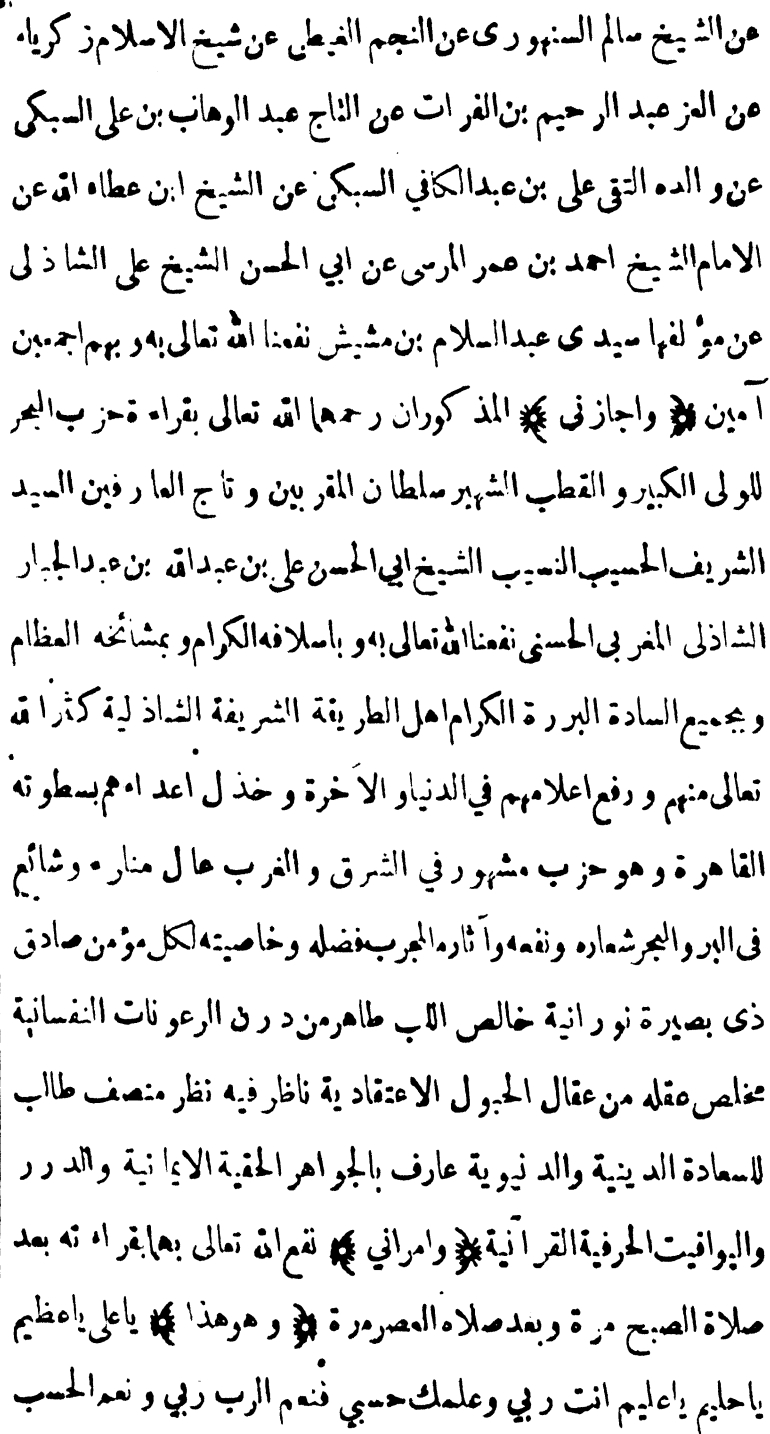 عن الشيخ سالم السنهوري عن النجم الغيطي عن شيخ الاسلام زكرياء
عن العز عبد الرحيم بن الفرات عن التاج عبد الوهاب بن علي السبكي
عن والده التقي علي بن عبدالكافي السبكي عن الشيخ ابن عطاء الله عن
الامام الشيخ احمد بن عمر المرسى عن ابي الحسن الشيخ علي الشاذلى
عن مؤلفها سيدى عبدالسلام بن مشيش نفعنا الله تعالى به وبهم اجمعين
آمين ﴿ واجازنى ﴾ المذكوران رحمهما الله تعالى بقراءة حزب البحر
للولى الكبير والقطب الشهير سلطان المقربين وتاج العارفين السيد
الشريف الحسيب النسيب الشيخ ابي الحسن علي بن عبدالله بن عبدالجبار
الشاذلى المغربى الحسنى نفعنا الله تعالى به وباسلافه الكرام وبمشائخه العظام
وبجميع السادة البررة الكرام اهل الطريقة الشريفة الشاذلية كثر الله
تعالى منهم ورفع اعلامهم في الدنيا والآخرة وخذل اعداءهم بسطوته
القاهرة وهو حزب مشهور في الشرق والغرب عال مناره وشائع
فى البر والبحر شعاره ونفعه وآثاره المجرب فضله وخاصيته لكل مؤمن صادق
ذى بصيرة نورانية خالص اللب طاهر من درن الرعونات النفسانية
مخلص عقله من عقال الحبول الاعتقادية ناظر فيه نظر منصف طالب
للسعادة الدينية والدنيوية عارف بالجواهر الحقية الايمانية والدرر
واليواقيت الحرفية القرآنية ﴿ وامراني ﴾ نفع الله تعالى بهما بقراءته بعد
صلاة الصبح مرة وبعد صلاة العصر مرة ﴿ وهو هذا ﴾ ياعلى ياعظيم
ياحليم ياعليم انت ربي وعلمك حسبي فنعم الرب ربي ونعم الحسب